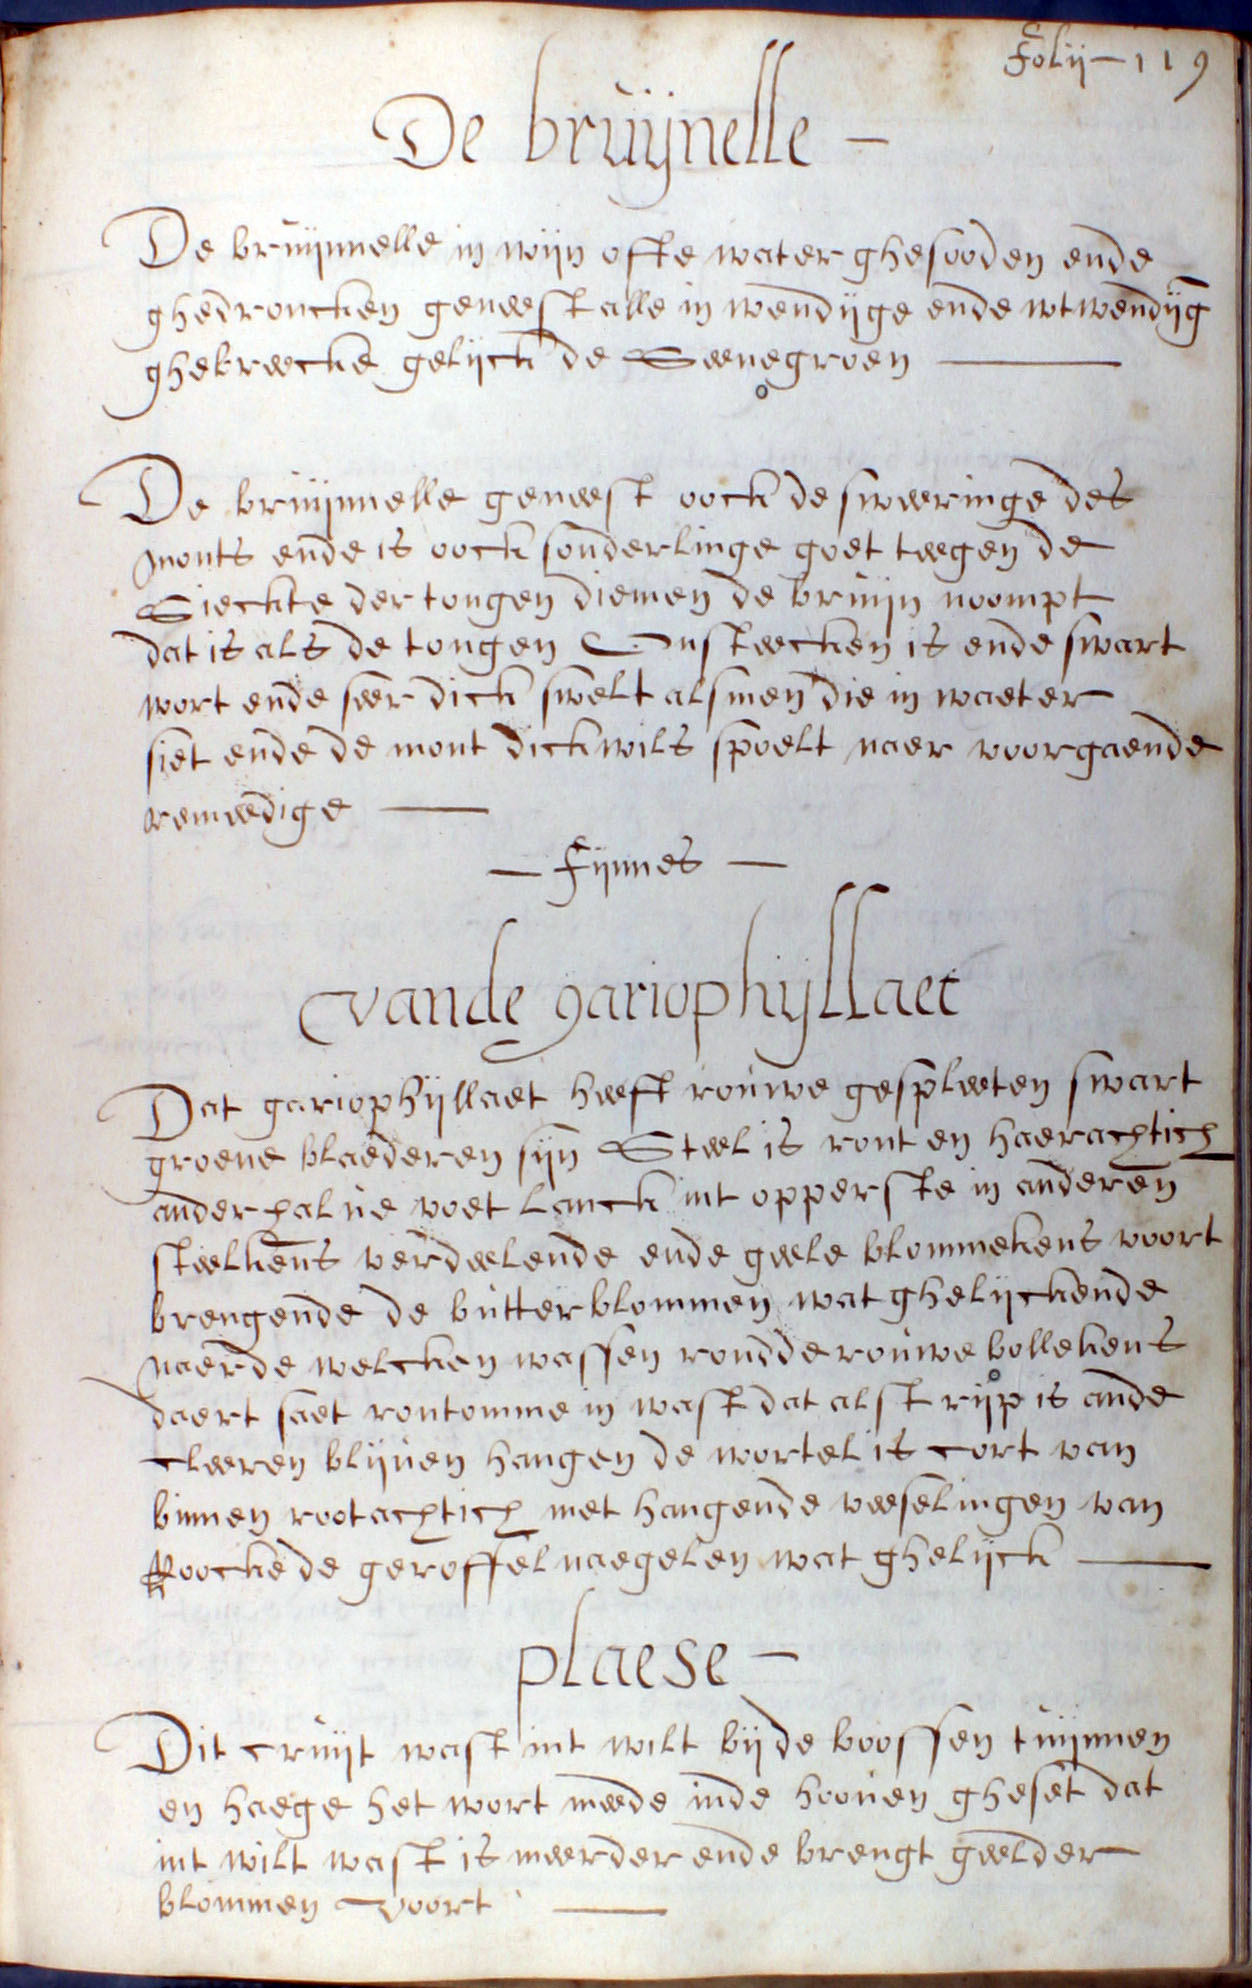 Folij - 119
De bruijnelle -
De bruijnnelle in wijn ofte water ghesooden ende
ghedroncken geneest alle in wendijge ende wtwendijg
ghebreecke gelijck de Seenegroen
De bruijnnelle geneest oock de sweeringe des
monts ende is oock sonderlinge goet teegen de
Sieckte der tongen diemen de bruijn noompt
dat is als de tongen Onsteecken is ende swart
wort ende seer dick swelt alsmen die in waeter
siet ende de mont dickwils spoelt naer voorgaende
remeedige
- Fijnnes -
vande gariophijllaet
Dat gariophijllaet heeft rouwe gespleeten swart
groene blaederen sijn Steel is ront en haerachtich
anderhalve voet lanck int opperste in anderen
steelkens verdeelende ende geele blommekens voort
brengende de butterblommen wat ghelijckende
naerde welcken wassen rondde rouwe bollekens
daert saet rontomme in wast dat alst rijp is ande
cleeren blijven hangen de wortel is cort van
binnen rootachtich met hangende veeselingen van
Roocke de geroffel naegelen wat ghelijck
plaese -
Dit cruijt wast int wilt bij de boossen tuijnnen
en haege het wort meede inde hooven gheset dat
int wilt wast is meerder ende brengt geelder
blommen voort